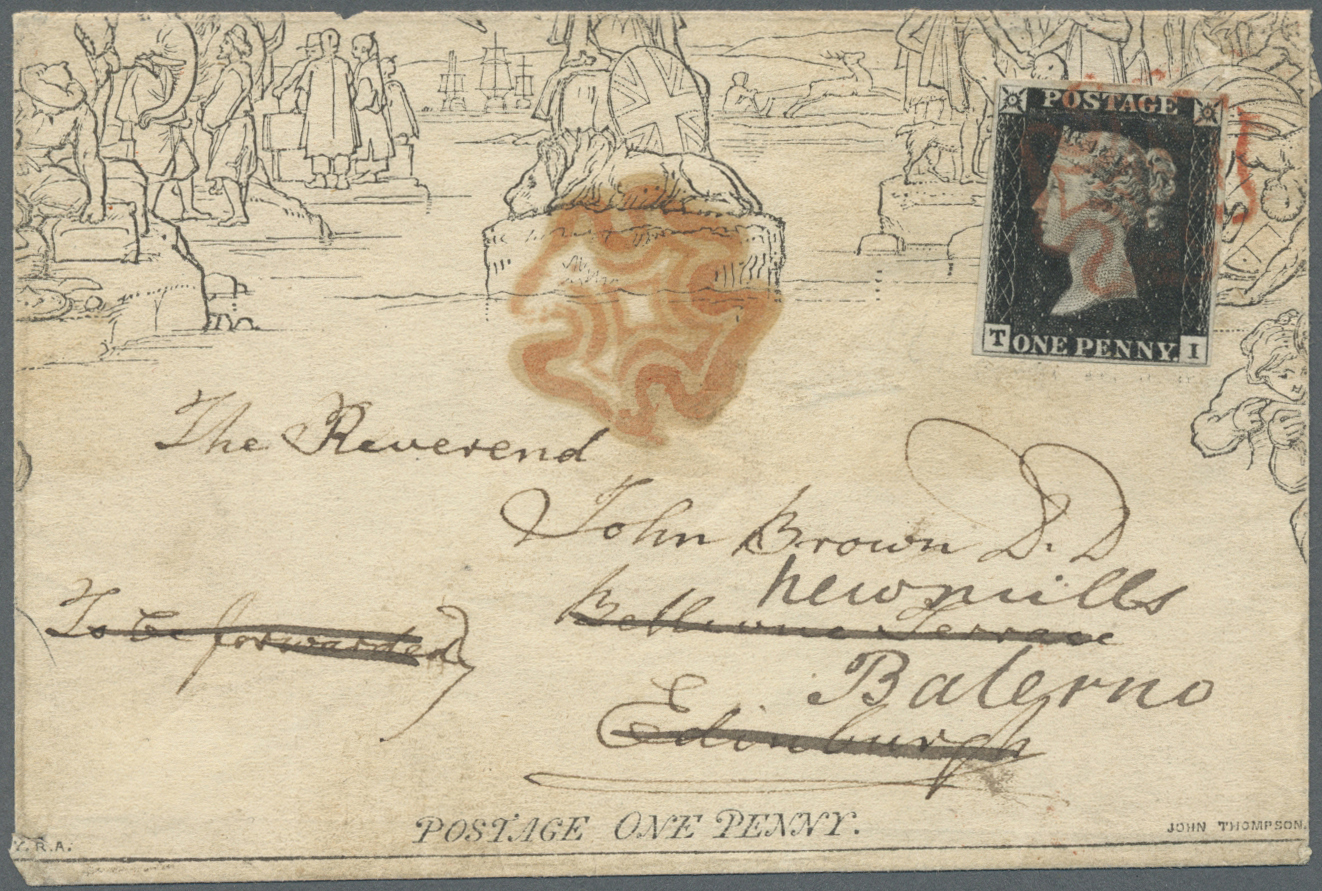 POSTAGE
T ONE PENNY. I
The Reverend
John Brown D.D
newmills
To be forwarded
Bellevue Terrace
Balerno
Edinburgh
POSTAGE ONE PENNY.
JOHN THOMPSON.
Y. R.A.